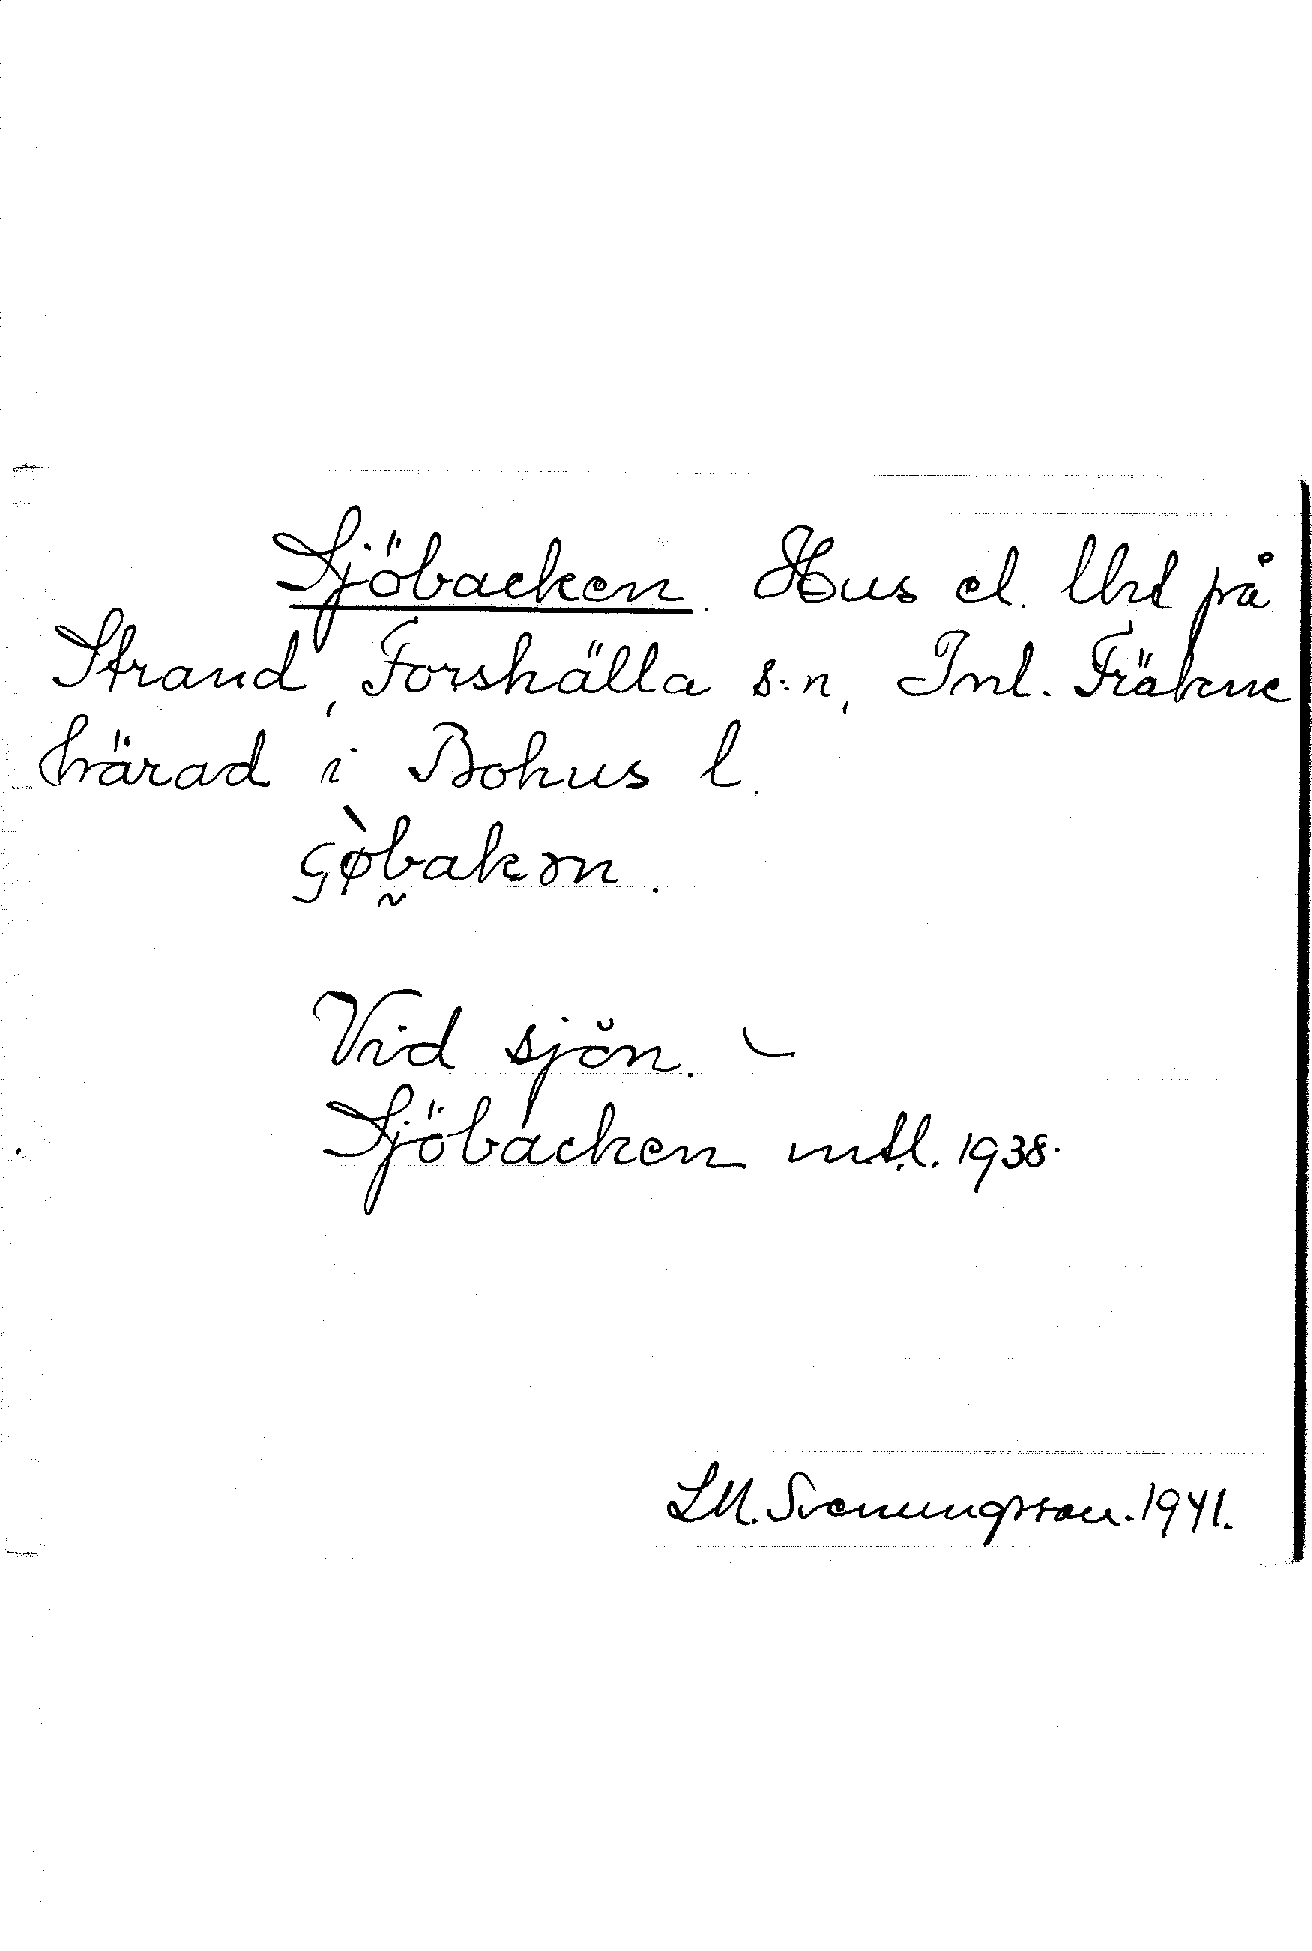 Sjöbacken. Hus el. lht på
Strand, Forshälla s:n, Inl. Fräkne
härad i Bohus l.
Vid sjön.
Sjöbacken mtl. 1938.
LM. Svenungsson. 1941.